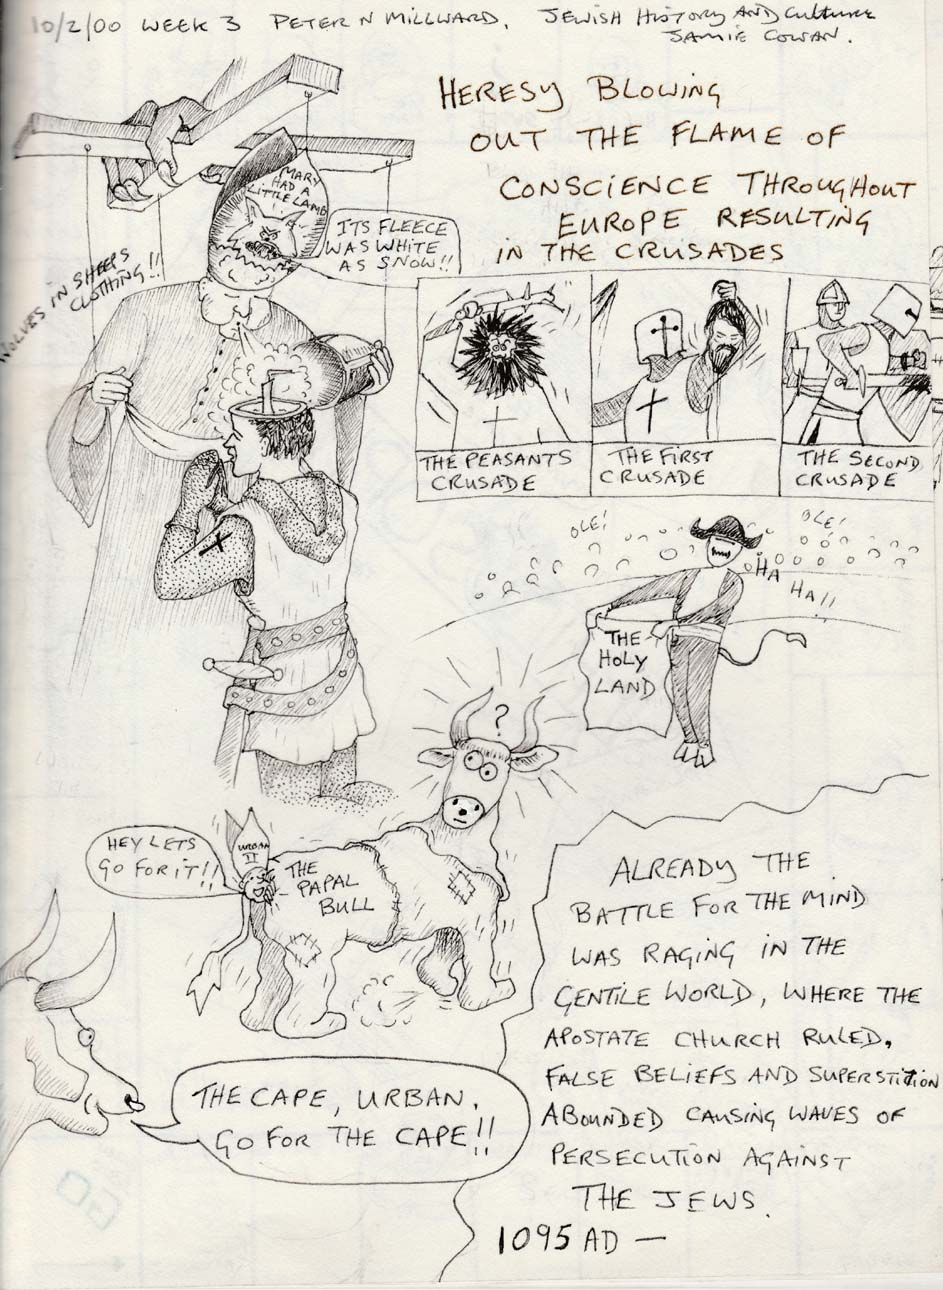 10/2/00 WEEK 3 PETER N MILLWARD. JEWISH HISTORY AND Culture
JAMIE COWAN.
HERESY BLOWING
OUT THE FLAME OF
CONSCIENCE THROUGHOUT
EUROPE RESULTING
IN THE CRUSADES
MARY
HAD A
LITTLE LAMB
ITS FLEECE
WAS WHITE
AS SNOW!!
WOLVES IN SHEEPS
CLOTHING!!
THE PEASANTS
CRUSADE
THE FIRST
CRUSADE
THE SECOND
CRUSADE
OLE!
OLE!
HA
HA!!
THE
HOLY
LAND
?
HEY LETS
GO FOR IT!!
URBAN
II
THE
PAPAL
BULL
THE CAPE, URBAN,
GO FOR THE CAPE!!
ALREADY THE
BATTLE FOR THE MIND
WAS RAGING IN THE
GENTILE WORLD, WHERE THE
APOSTATE CHURCH RULED,
FALSE BELIEFS AND SUPERSTITION
ABOUNDED CAUSING WAVES OF
PERSECUTION AGAINST
THE JEWS.
1095 AD —